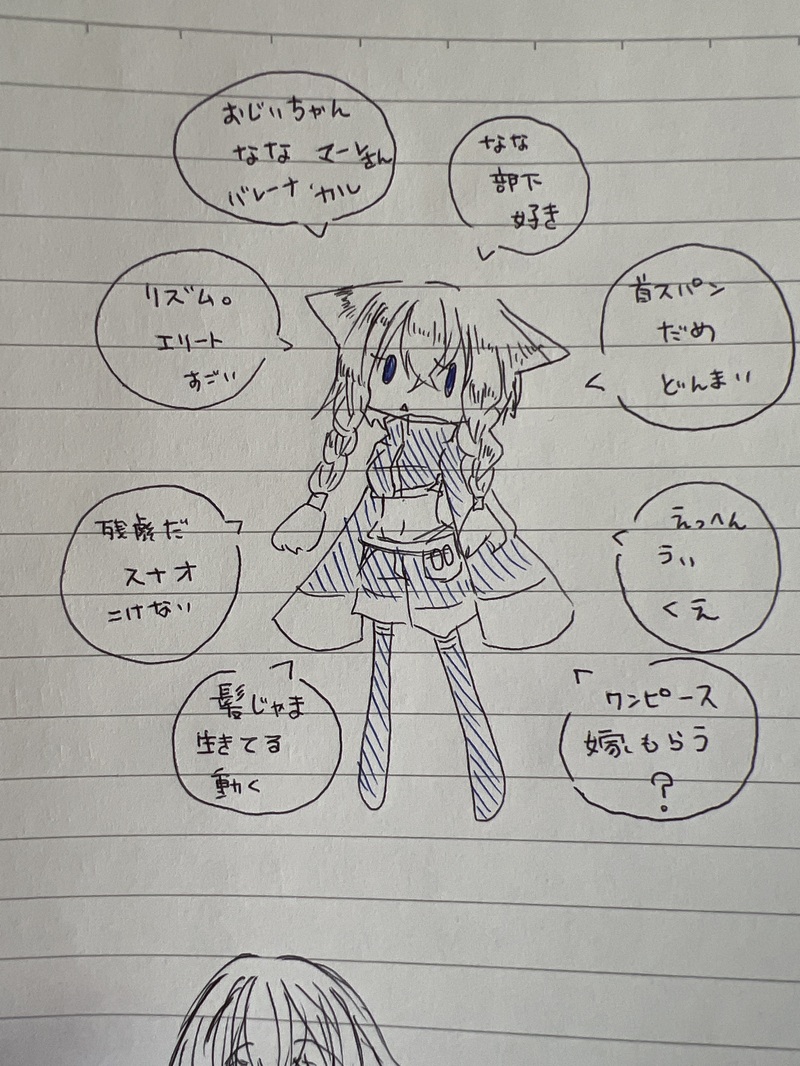 おじいちゃん
なな マーレさん
バレーナ
なな
部下
好き
リズム。
エリート
すごい
首スパン
だめ
どんまい
残劇だ
スナオ
こけない
えっへん
うぃ
くえ
髪じゃま
生きてる
動く
ワンピース
嫁もらう
?